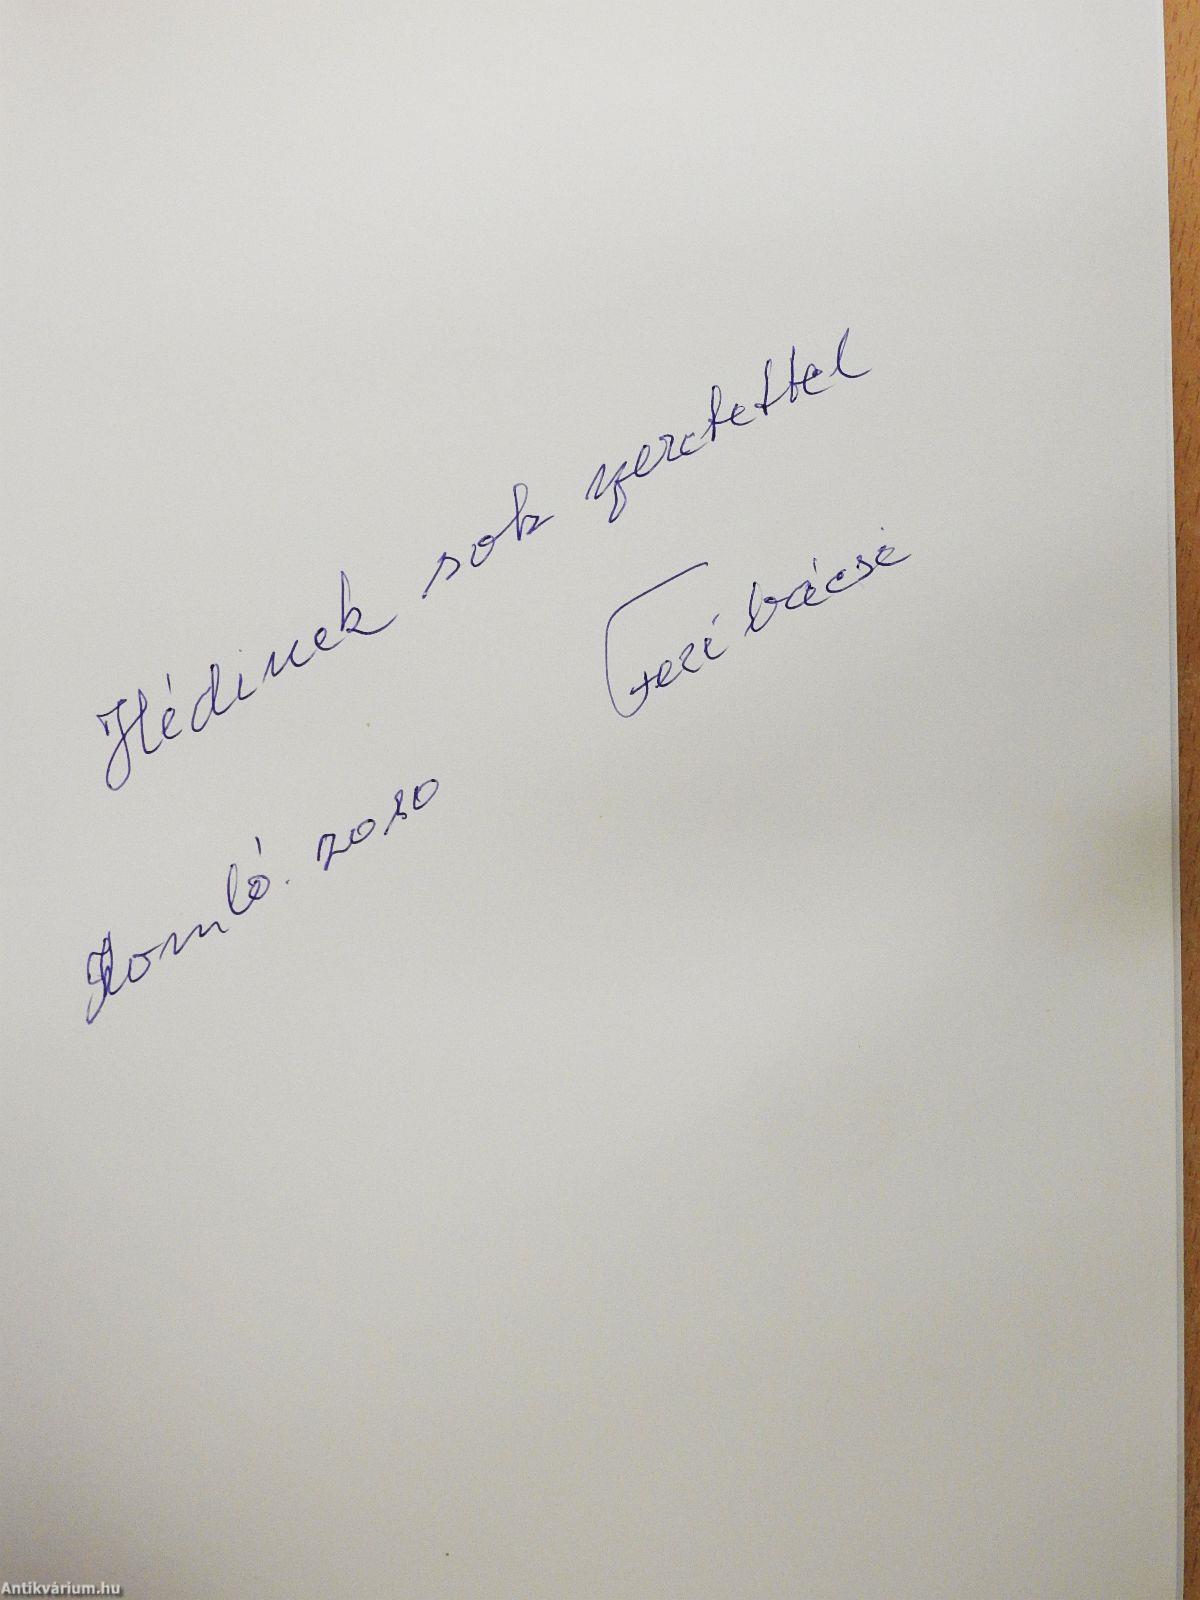 Hédinek sok szeretettel
Feri bácsi
Komló. 2010
Antikvárium.hu